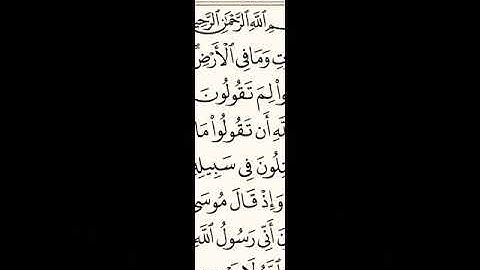 ـمِ ٱللَّهِ ٱلرَّحْمَٰنِ ٱلرَّحِيـ
ـتِ وَمَا فِى ٱلْأَرْضِ
ـوا۟ لِمَ تَقُولُونَ
ـلَّهِ أَن تَقُولُوا۟ مَا
ـتِلُونَ فِى سَبِيلِهِ
وَإِذْ قَالَ مُوسَىٰ
ـنَ أَنِّى رَسُولُ ٱللَّهِ